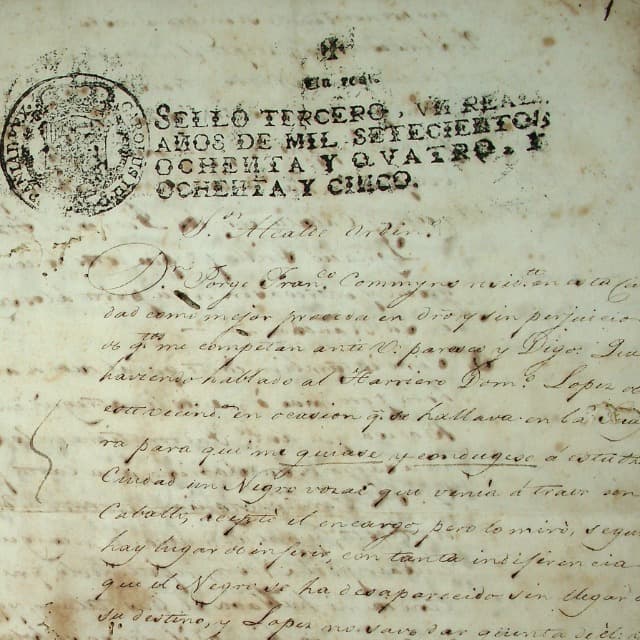 Un real
SELLO TERCERO, VN REAL,
AÑOS DE MIL SETECIENTOS
OCHENTA Y QVATRO, Y
OCHENTA Y CINCO.
S.r Alcalde Ordin.o
D.n Jorge Fran.co Commyns resid.te en esta Ciu
dad como mejor proceda en dro y sin perjuicio
q.e me competan ante V. paresco y Digo: Que
haviendo hallado al Harriero Dom.o Lopez de
este vecind.o en ocasion q.e se hallava en la Guay
ra para que me guiase y condugese a esta
Ciudad un Negro vozal que venia á traer un
Caballo, acepto el encargo, pero lo miró, segun
hay lugar de inferir, con tanta indiferencia
que el Negro se ha desaparecido sin llegar a
su destino, y Lopez no save dar quenta de el